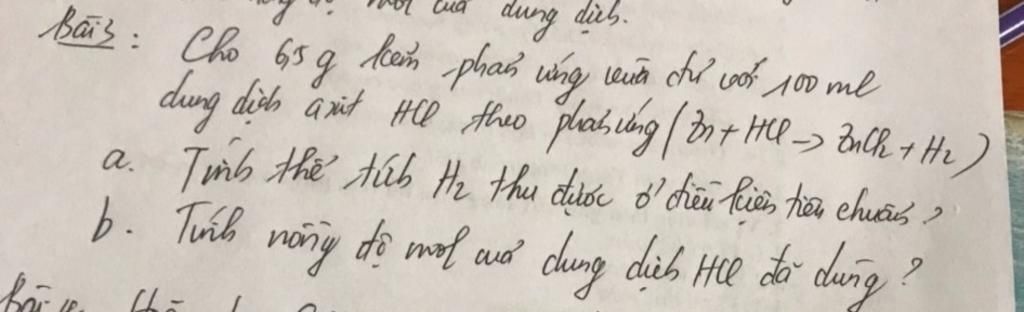 mol của dung dịch.
Bài 3: Cho 6,5 g kẽm phản ứng vừa đủ với 100 ml
dung dịch axit HCl theo phản ứng (Zn + HCl -> ZnCl2 + H2)
a. Tính thể tích H2 thu được ở điều kiện tiêu chuẩn?
b. Tính nồng độ mol của dung dịch HCl đã dùng?